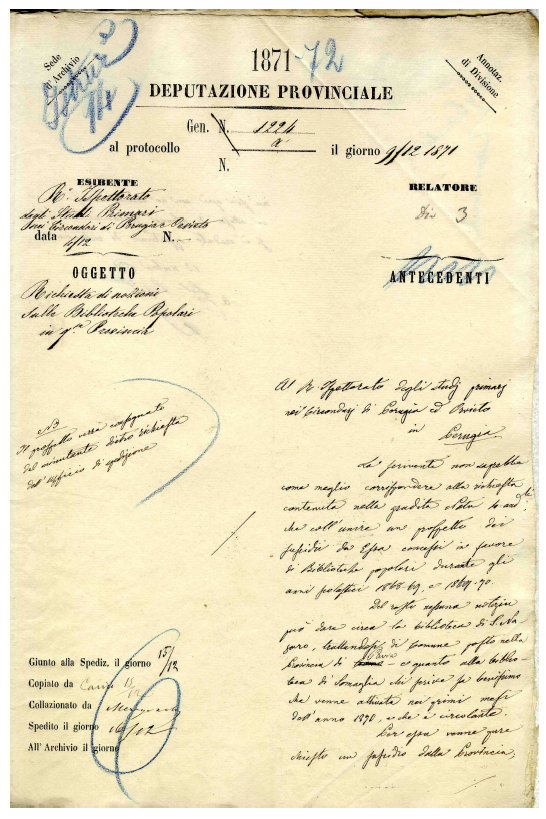 Sede
d'Archivio
1871-72
Annotaz.
di Divisione
DEPUTAZIONE PROVINCIALE
Gen. N. 1224
al protocollo
il giorno 9/12 1871
N.
ESIBENTE
R.º Ispettorato
degli Studi Primari
nei Circondari di Perugia e Orvieto
data 4/12 N.
RELATORE
Div 3
OGGETTO
Richiesta di nozioni
sulle Biblioteche Popolari
in q.ta Provincia
ANTECEDENTI
NB
Il prospetto verrà consegnato
dal minutante dietro richiesta
dall'Ufficio di spedizione
Al R. Ispettorato degli studj primarj
nei Circondarj di Perugia ed Orvieto
in
Perugia
La scrivente non saprebbe
come meglio corrispondere alla richiesta
contenuta nella gradita Nota 4 and.te
che coll'unire un prospetto dei
sussidi da Essa concessi in favore
di Biblioteche popolari durante gli
anni scolastici 1868-69, e 1869-70.
Del resto nessuna notizia
può dare circa la biblioteca di S. Na
zaro, trattandosi di Comune posto nella
Provincia di Pavia e quanto alla biblio
teca di Somaglia
che venne attivata nei primi mesi
dell'anno 1870, e che è circolante.
Per essa venne pure
chiesto un sussidio dalla Provincia,
Giunto alla Spediz. il giorno 15/12
Copiato da
Collazionato da
Spedito il giorno 16/12
All'Archivio il giorno